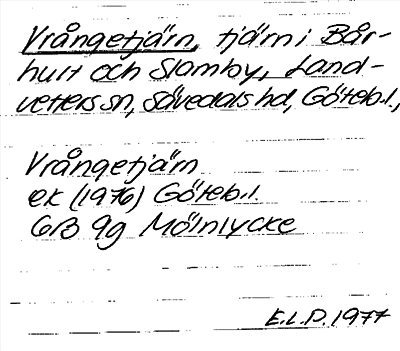 Vrångetjärn, tjärn i Bår-
hult och Slamby, Land-
vetters sn, Sävedals hd, Göteb.l.,
Vrångetjärn
ek (1976) Göteb.l.
6B 9g Mölnlycke
E.L.P. 1977